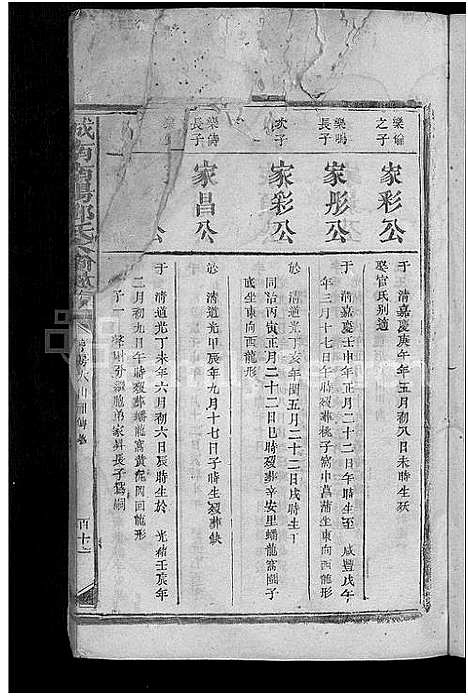 樂倫之子
家彩公
于 清嘉慶庚午年五月初八日未時生歿
娶官氏別適
樂鳴長子
家彤公
于 清嘉慶壬申年正月二十二日午時生至 咸豐戊午
年三月十七日午時歿葬桃子窩中菖蒲坐東向西龍形
次子
家彩公
於 清道光丁亥年閏五月二十二日戌時生于
同治丙寅正月二十二日巳時歿葬辛安里蟠龍窩團子
底坐東向西龍形
樂儔長子
家昌公
於 清道光甲辰年九月十七日子時生歿葬缺
樂
公
于 清道光丁未年六月六日辰時生於 光緒壬辰年
二月初九日午時歿葬蟠龍窩黃泥凹回龍形
子一 胞弟家昇長子為嗣
城南南陽鄧氏